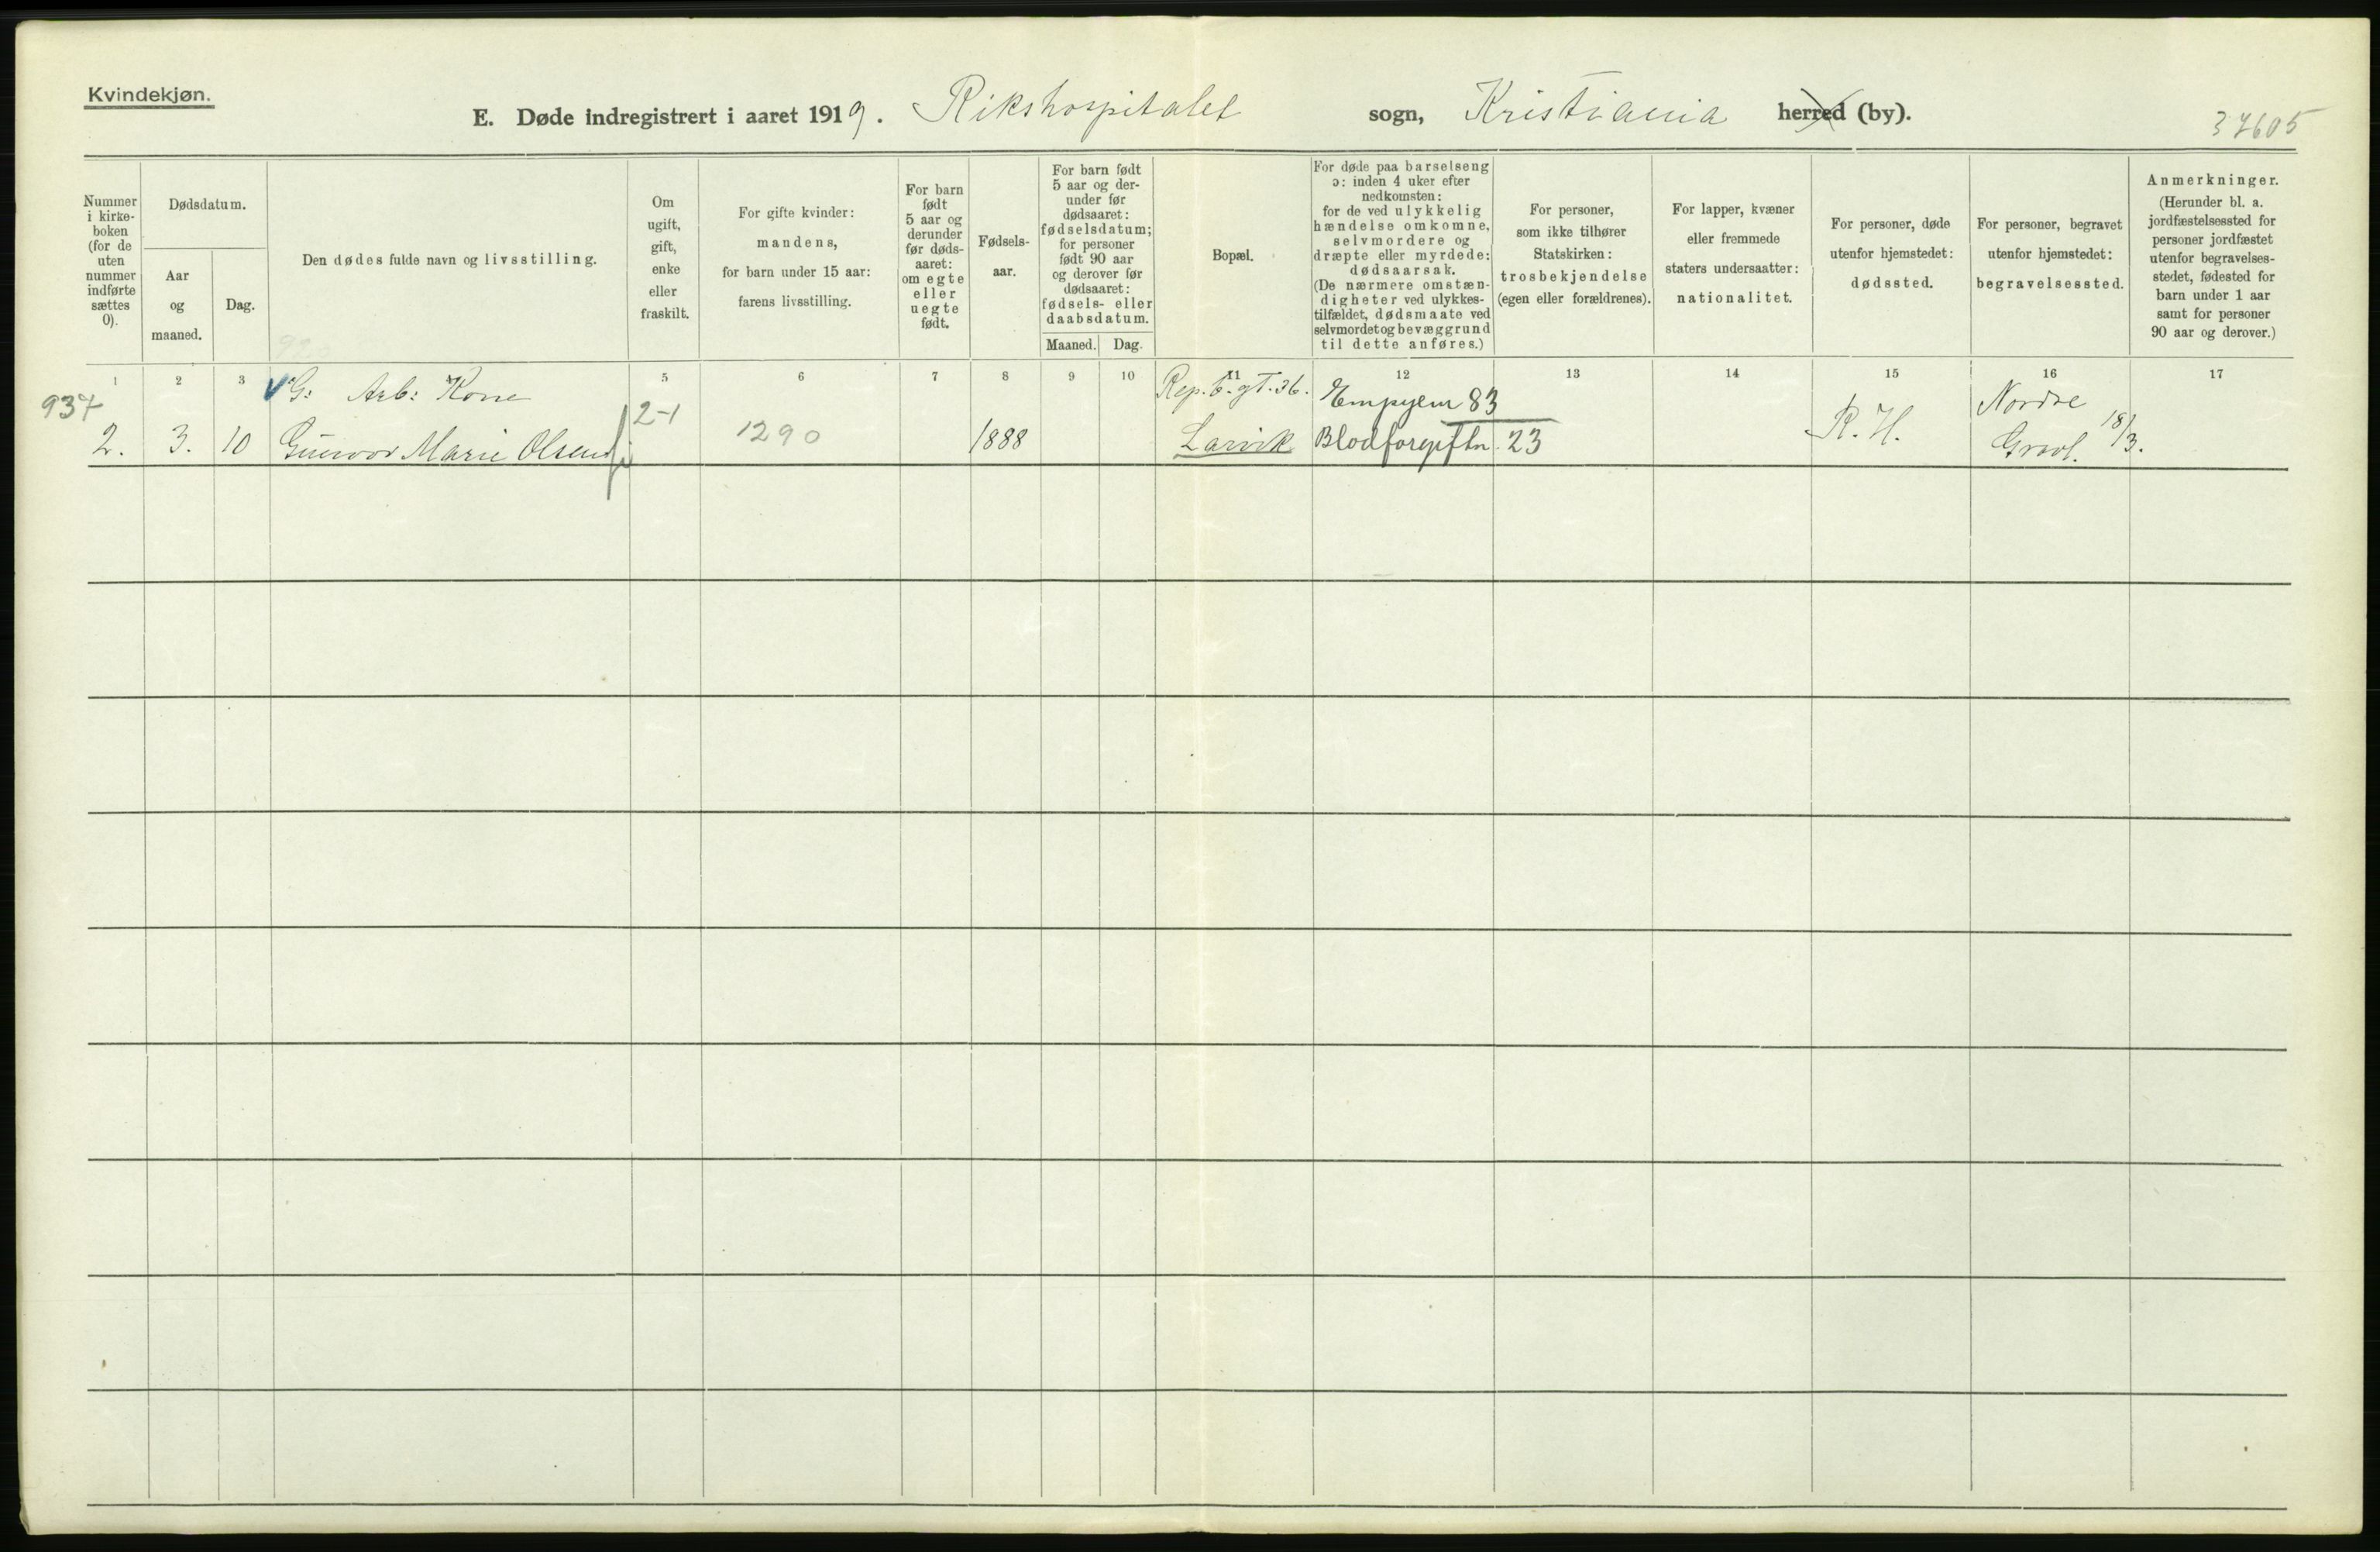 Kvindekjøn.
E. Døde indregistrert i aaret 1919. Rikshospitalet sogn, Kristiania herred (by).
37605
Nummer
i kirke-
boken
(for de
uten
nummer
indførte
sættes
0).
Dødsdatum.
Aar
og
maaned.
Dag.
Den dødes fulde navn og livsstilling.
Om
ugift,
gift,
enke
eller
fraskilt.
For gifte kvinder:
mandens,
for barn under 15 aar:
farens livsstilling.
For barn
født
5 aar og
derunder
før døds-
aaret:
om egte
eller
uegte
født.
Fødsels-
aar.
For barn født
5 aar og der-
under før
dødsaaret:
fødselsdatum;
for personer
født 90 aar
og derover før
dødsaaret:
fødsels- eller
daabsdatum.
Maaned.
Dag.
Bopæl.
For døde paa barselseng
ɔ: inden 4 uker efter
nedkomsten:
for de ved ulykkelig
hændelse omkomne,
selvmordere og
dræpte eller myrdede:
dødsaarsak.
(De nærmere omstæn-
digheter ved ulykkes-
tilfældet, dødsmaate ved
selvmordet og bevæggrund
til dette anføres.)
For personer,
som ikke tilhører
Statskirken:
trosbekjendelse
(egen eller forældrenes).
For lapper, kvæner
eller fremmede
staters undersaatter:
nationalitet.
For personer, døde
utenfor hjemstedet:
dødssted.
For personer, begravet
utenfor hjemstedet:
begravelsessted.
Anmerkninger.
(Herunder bl. a.
jordfæstelsessted for
personer jordfæstet
utenfor begravelses-
stedet, fødested for
barn under 1 aar
samt for personer
90 aar og derover.)
1 2 3 4 5 6 7 8 9 10 11 12 13 14 15 16 17
937
G: Arb: Kone
Rep. b. gt. 36.
Empyem 83
Nordre
2. 3. 10 Gunvor Marie Olsen
2-1
1290
1888
Larvik
Blodforgiftn. 23
R. H.
Gravl. 18/3.